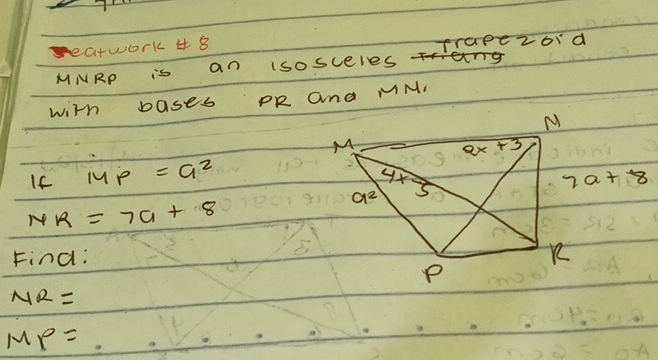 Seatwork # 8
MNRP is an isosceles trapezoid
with bases PR and MN,
If MP = a²
NR = 7a + 8
Find:
NR =
MP =
M
N
2x + 3
4x 5
a²
7a + 8
P
R